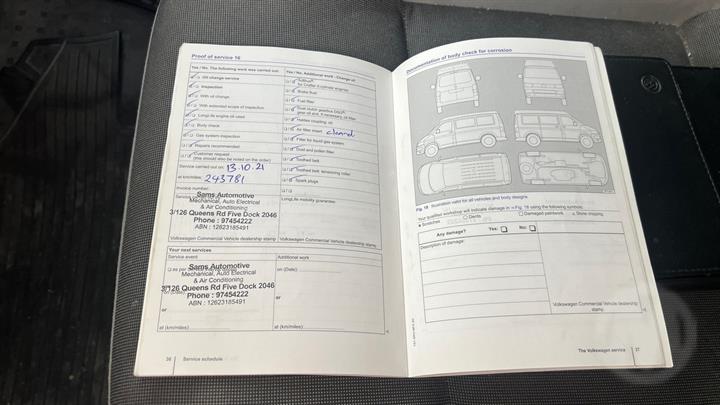 Proof of service 16
Yes / No. The following work was carried out:
Oil change service
Inspection
With oil change
With extended scope of inspection
LongLife engine oil used
Body check
Gas system inspection
Repairs recommended
Customer request
(one should also be noted on the order)
Service carried out on: 13.10.21
at km/miles: 243781
Invoice number:
Sams Automotive
Mechanical, Auto Electrical
& Air Conditioning
3/126 Queens Rd Five Dock 2046
Phone : 97454222
ABN : 12623185491
Volkswagen Commercial Vehicle dealership stamp
Yes / No. Additional work - Change of:
Brake fluid
Fuel filter
Haldex coupling oil
Air filter insert cleaned
Filter for liquid gas system
Dust and pollen filter
Toothed belt
Toothed belt tensioning roller
Spark plugs
LongLife mobility guarantee:
Volkswagen Commercial Vehicle dealership stamp
Your next services
Service event
Additional work
Sams Automotive
Mechanical, Auto Electrical
& Air Conditioning
3/126 Queens Rd Five Dock 2046
Phone : 97454222
ABN : 12623185491
or
at (km/miles)
on (Date)
or
at (km/miles)
36 Service schedule
Documentation of body check for corrosion
Fig. 18 Illustration valid for all vehicles and body designs.
Your qualified workshop will indicate damage in Fig. 18 using the following symbols:
Scratches Dents Damaged paintwork Stone chipping
Any damage? Yes: No:
Description of damage:
Volkswagen Commercial Vehicle dealership
stamp:
The Volkswagen service 37